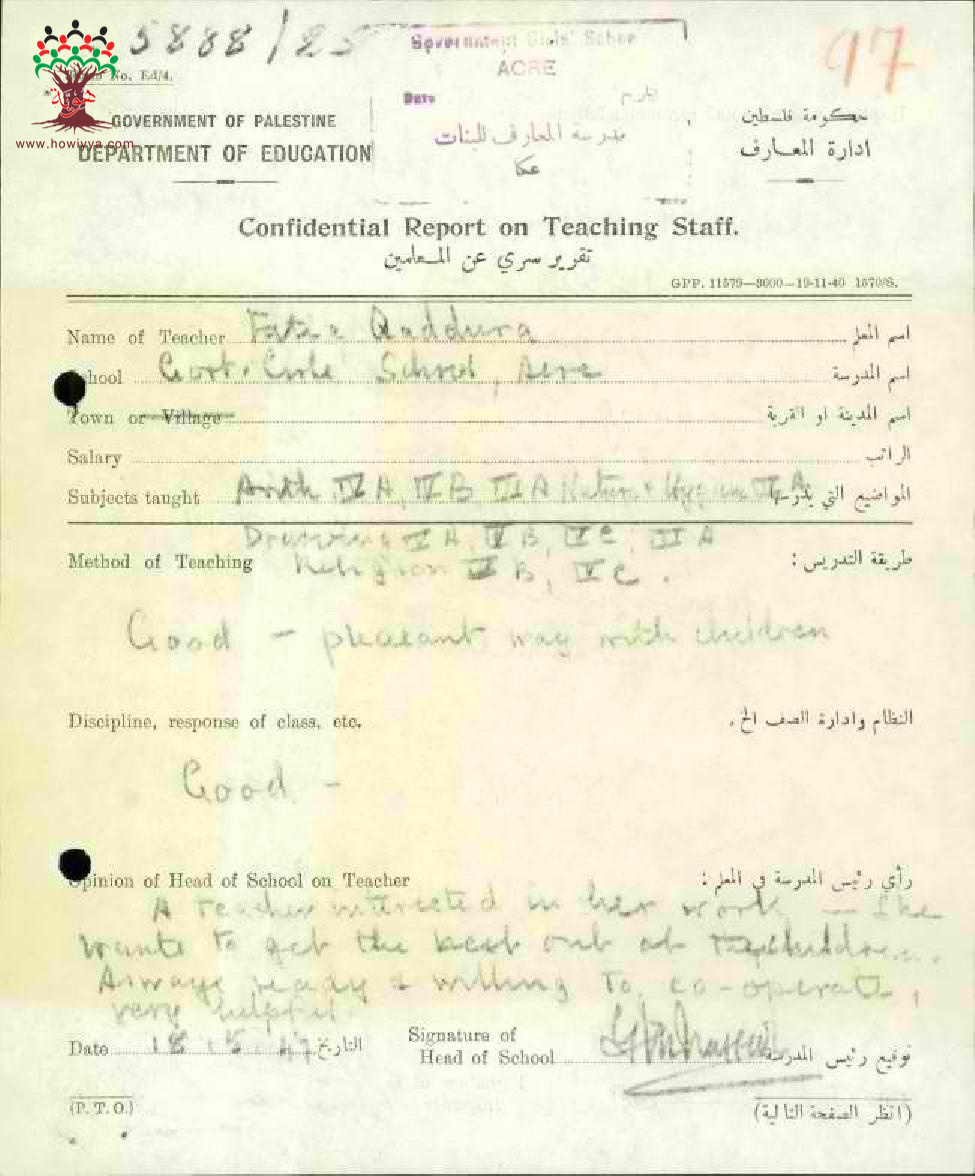 5888/25
Government Girls' School
ACRE
Date
تاريخ
مدرسة المعارف للبنات
عكا
97
No. Ed/4.
هوية
www.howiyya.com
GOVERNMENT OF PALESTINE
DEPARTMENT OF EDUCATION
حكومة فلسطين
ادارة المعارف
Confidential Report on Teaching Staff.
تقرير سري عن المعلمين
GPP. 11579—3000—19-11-40 1570/S.
Name of Teacher Qaddura اسم المعلم
School Govt. Girls' School, Acre اسم المدرسة
Town or Village اسم المدينة او القرية
Salary الراتب
Subjects taught Arith IV A, IV B III A Nature + Hygiene A المواضيع التي يدرسها
Drawing A, V B, IV C, III A
Method of Teaching Religion B, IV C. طريقة التدريس :
Good - pleasant way with children
Discipline, response of class, etc. النظام وادارة الصف الخ.
Good -
Opinion of Head of School on Teacher رأي رئيس المدرسة في المعلم :
A teacher interested in her work - She
wants to get the best out of the children.
Always ready + willing to co-operate,
very helpful.
Date 18.5.47 التاريخ
Signature of
Head of School توقيع رئيس المدرسة
(P. T. O.) (انظر الصفحة التالية)